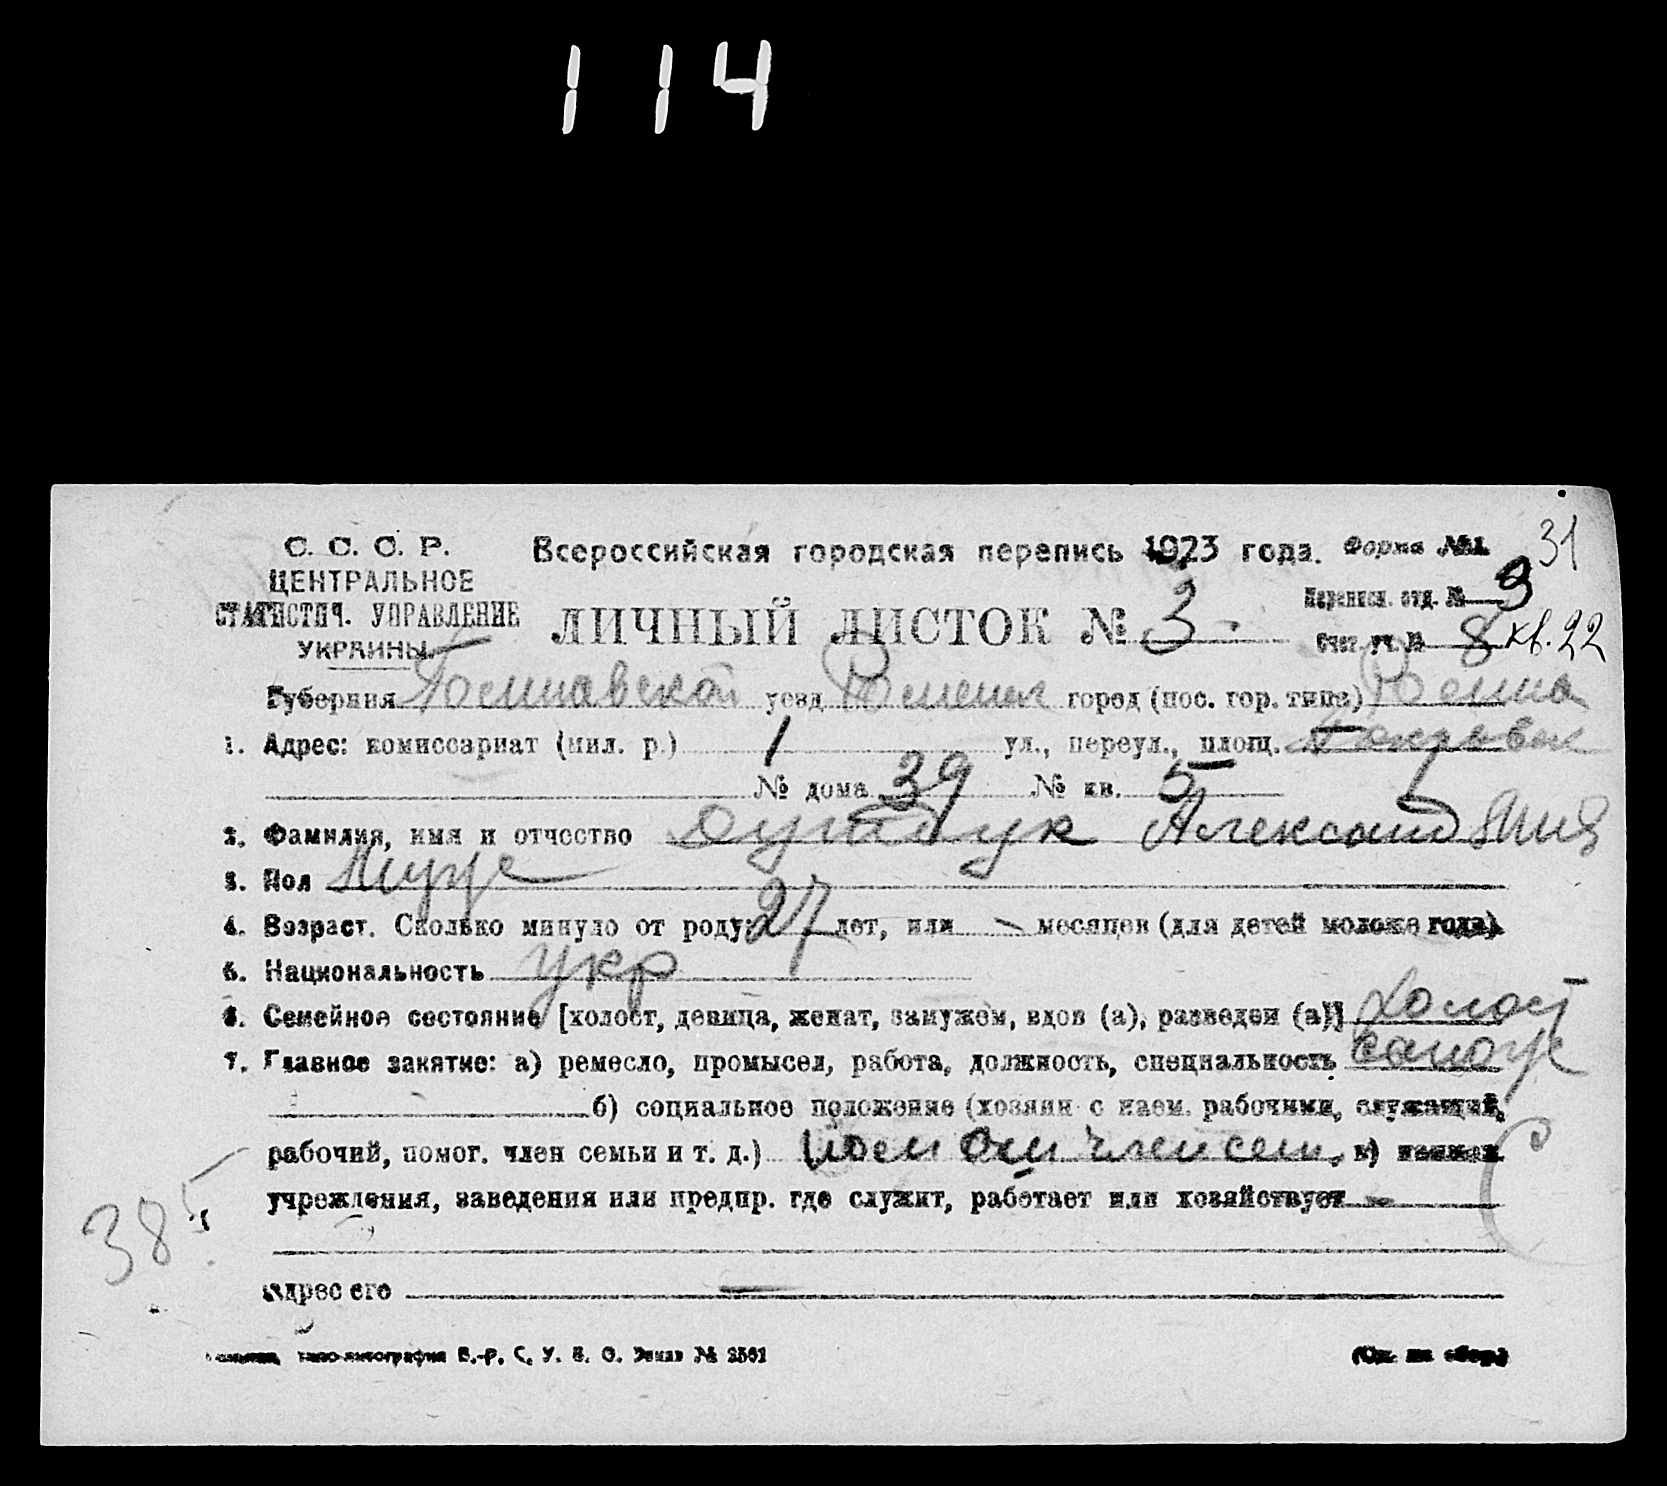 114
С. С. С. Р.
ЦЕНТРАЛЬНОЕ
СТАТИСТИЧ. УПРАВЛЕНИЕ
УКРАИНЫ
Всероссийская городская перепись 1923 года.
Форма №1. 31
ЛИЧНЫЙ ЛИСТОК № 3
Переписн. отд. № 9
Счет. уч. № 8 кв. 22
Губерния Полтавской уезд Роменск город (пос. гор. типа) Ромна
1. Адрес: комиссариат (мил. р.) 1 ул., переул., площ.
№ дома 39 № кв. 5
2. Фамилия, имя и отчество Александ
3. Пол Муж
4. Возраст. Сколько минуло от роду: 27 лет, или — месяцев (для детей моложе года).
5. Национальность укр
6. Семейное состояние [холост, девица, женат, замужем, вдов (а), разведен (а)] холост
7. Главное занятие: а) ремесло, промысел, работа, должность, специальность сапож
б) социальное положение (хозяин с наем. рабочими, служащий,
рабочий, помог. член семьи и т. д.) член сем. в)
учреждения, заведения или предпр. где служит, работает или хозяйствует —
адрес его —
385
типо-литография В.-Р. С. У. В. О. Заказ № 2561
(См. на обор.)